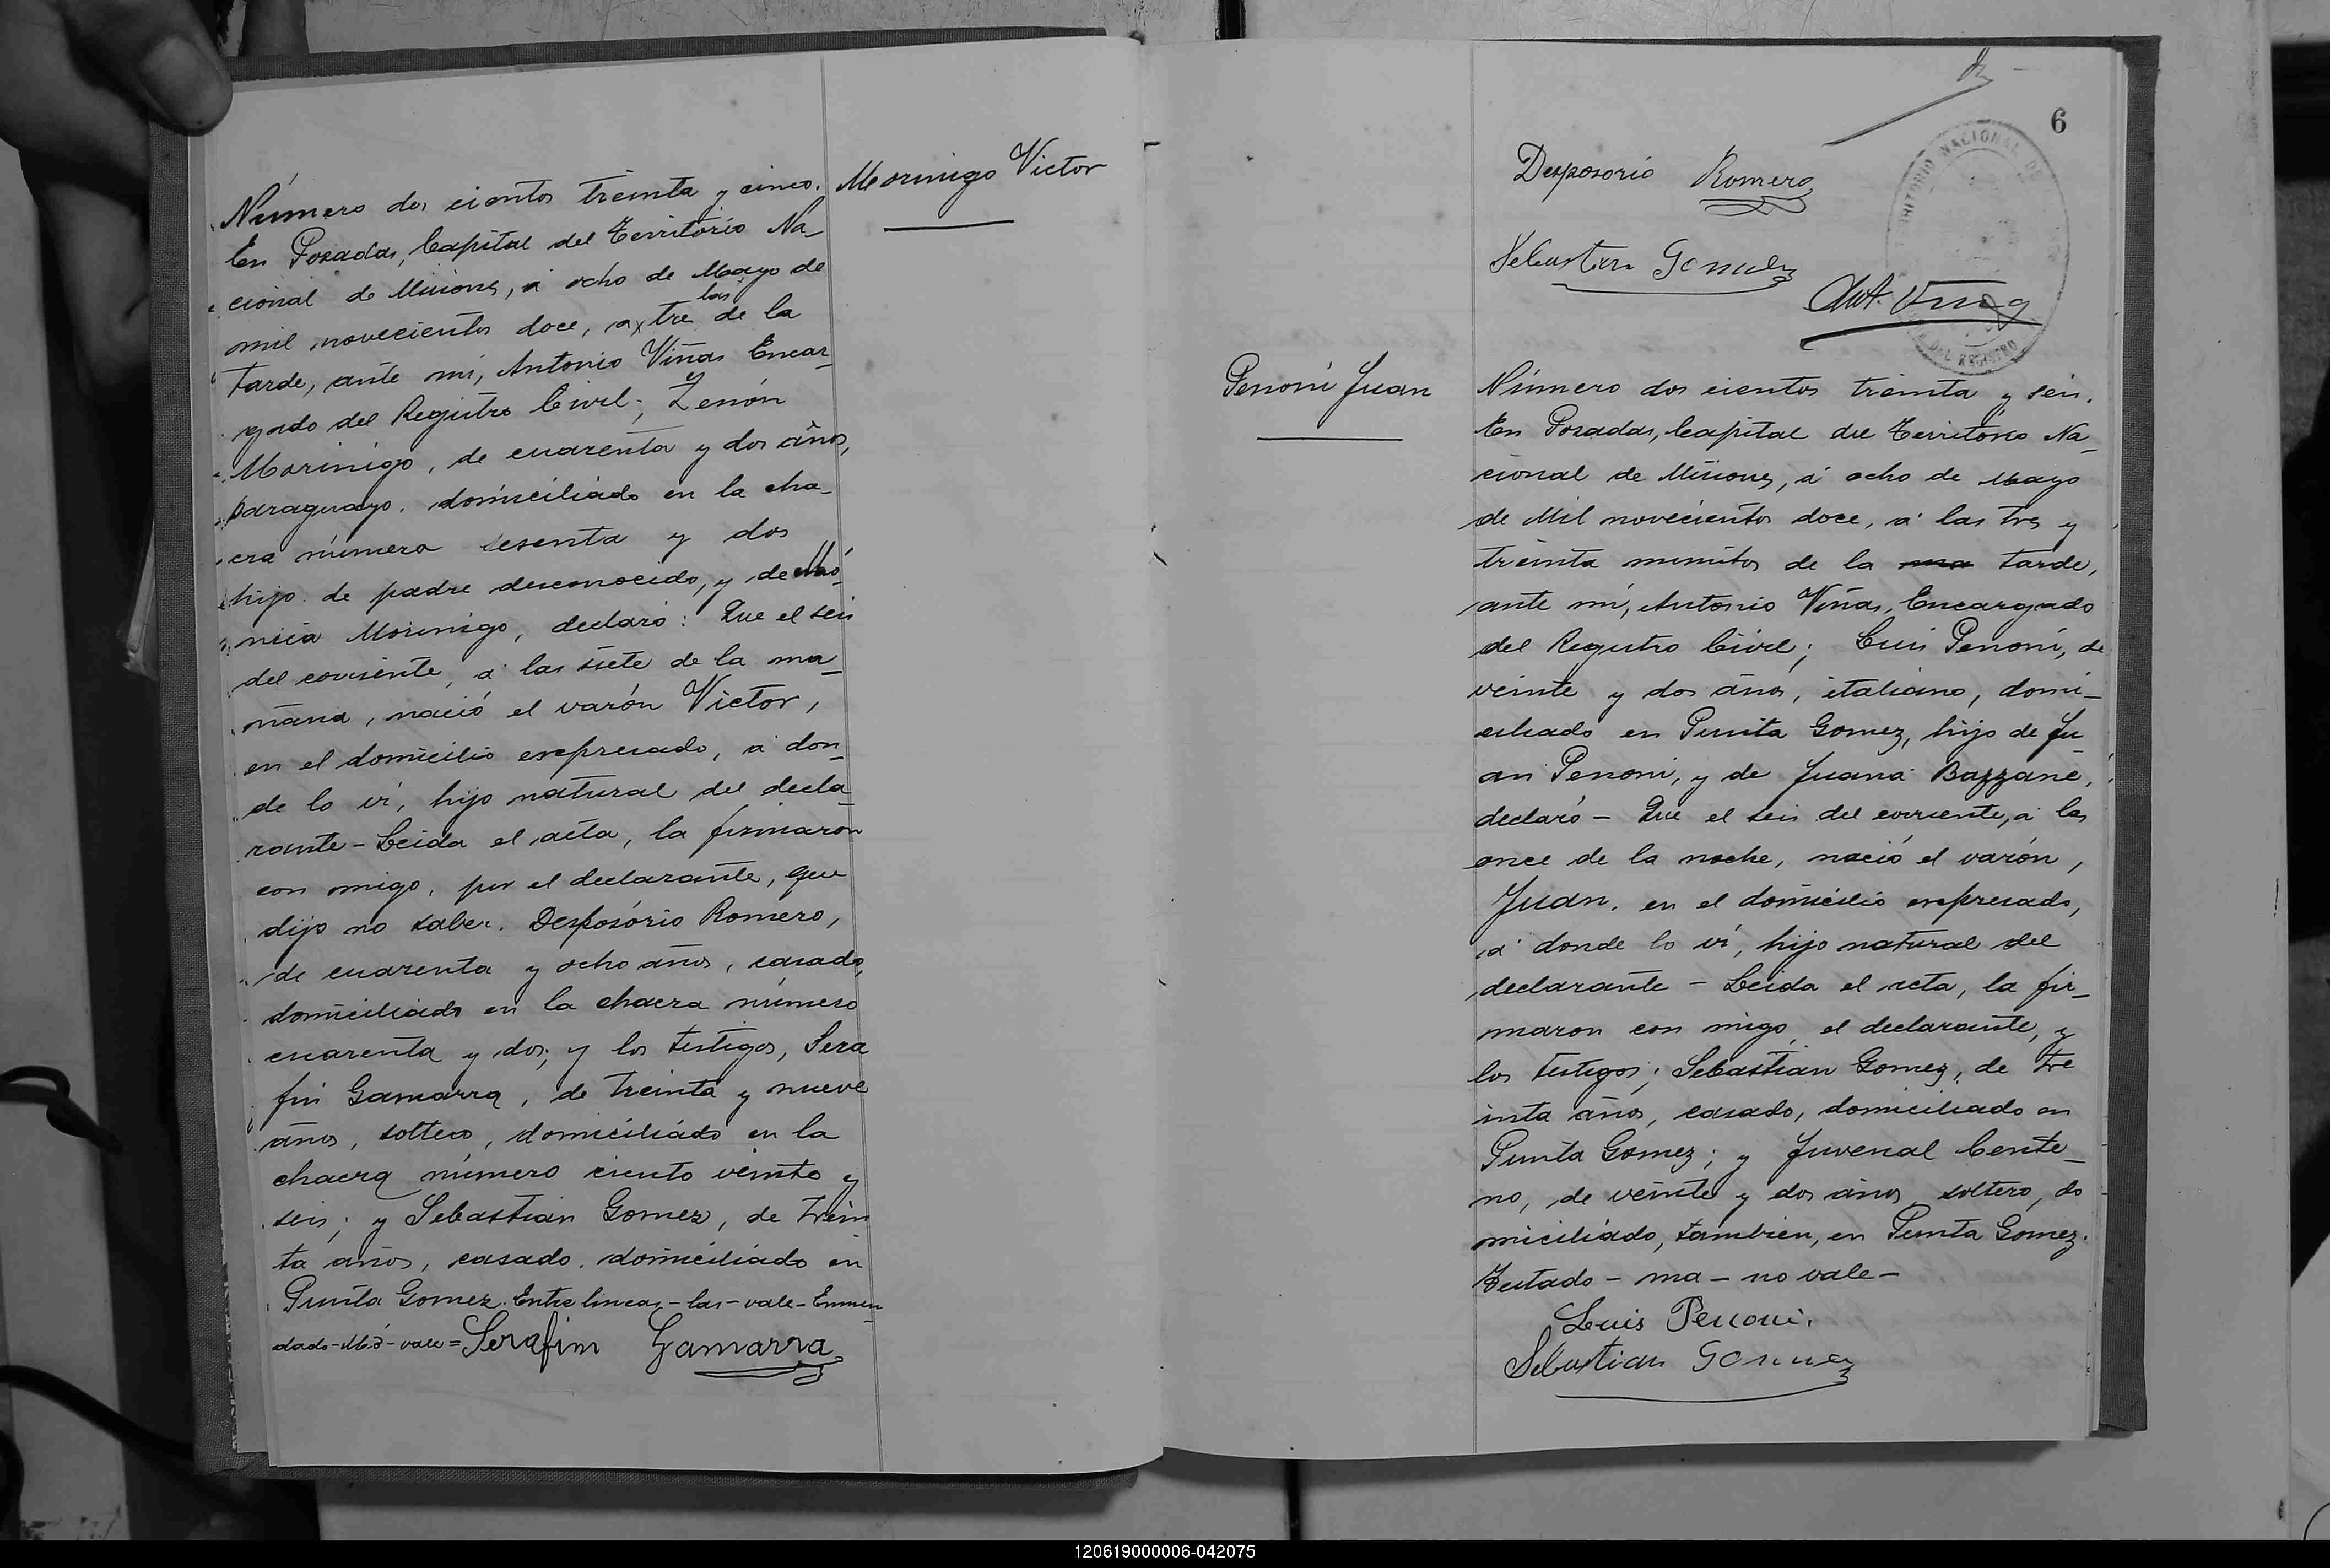 Número dos cientos treinta y cinco.
En Posadas, Capital del Territorio Na_
cional de Misiones, á ocho de Mayo de
las
mil novecientos doce, a x tre de la
tarde, ante mi, Antonio Viñas Encar_
gado del Registro Civil; Zenón
Morinigo, de cuarenta y dos años,
paraguayo, domiciliado en la cha_
cra número sesenta y dos
hijo de padre desconocido, y de Mó_
nica Morinigo, declaró: Que el seis
del corriente, á las siete de la ma_
ñana, nació el varón Victor,
en el domicilio expresado, á don_
de lo ví, hijo natural del decla_
rante - Leida el acta, la firmaron
con migo, por el declarante, que
dijo no saber. Desposório Romero,
de cuarenta y ocho años, casado,
domiciliado en la chacra número
cuarenta y dos; y los testigos, Sera
fin Gamarra, de treinta y nueve
años, soltero, domiciliado en la
chacra número ciento veinte y
seis; y Sebastian Gomez, de trein
ta años, casado, domiciliado en
Punta Gomez. Entre lineas - las - vale - Enmen_
dado - Mó - vale = Serafim Gamarra
Morinigo Victor
6
Desposorio Romero
Sebastian Gomez
Ant. Viñas
TERRITORIO NACIONAL DE
DEL REGISTRO
Penoni Juan
Número dos cientos treinta y seis.
En Posadas, Capital del Territorio Na_
cional de Misiones, á ocho de Mayo
de Mil novecientos doce, á las tres y
treinta minutos de la ma tarde,
ante mi, Antonio Viñas, Encargado
del Registro Civil; Luis Penoni, de
veinte y dos años, italiano, domi_
ciliado en Punta Gomez, hijo de Ju_
an Penoni, y de Juana Bazzane,
declaró - Que el seis del corriente, á las
once de la noche, nació el varón,
Juan, en el domicilio expresado,
á donde lo ví, hijo natural del
declarante - Leida el acta, la fir_
maron con migo, el declarante, y
los testigos; Sebastian Gomez, de tre
inta años, casado, domiciliado en
Punta Gomez; y Juvenal Cente_
no, de veinte y dos años, soltero, do
miciliado, tambien, en Punta Gomez.
Testado - ma - no vale -
Luis Penoni.
Sebastian Gomez
120619000006-042075